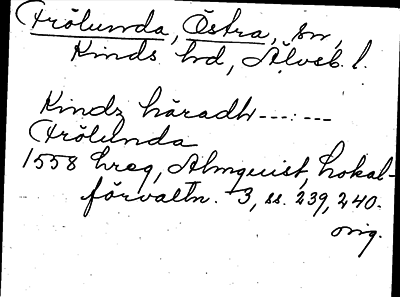 Frölunda, Östra, sn,
Kinds hd, Älvsb. l.
Kindz häradh ---:---
Frölunda
1558 hreg, Almquist, Lokal-
förvaltn. 3, ss. 239, 240.
orig.